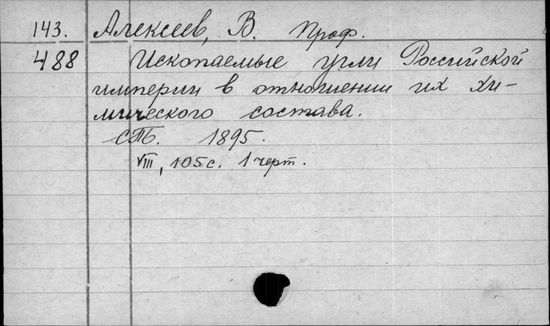 143. Алексеев, В. Проф.
488 Ископаемые угли Российской
империи в отношении их хи-
мического состава.
СПБ. 1895.
VIII, 105 с. 1 черт.